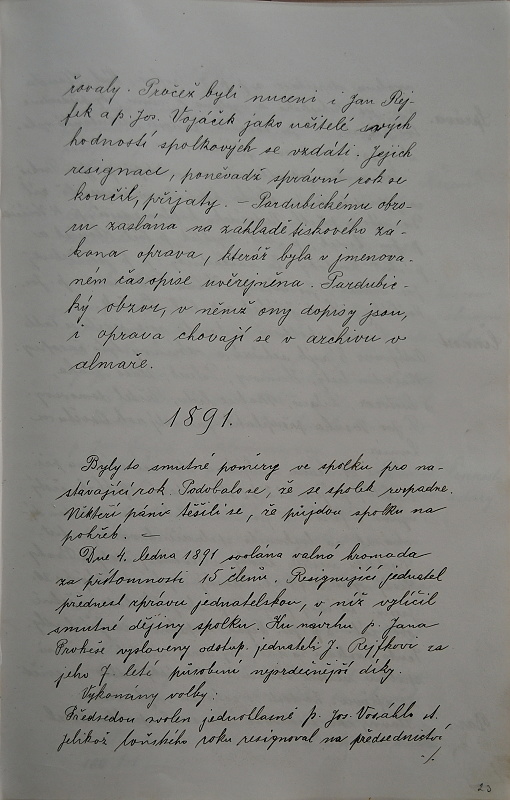 řovaly. Pročež byli nuceni i Jan Rej-
fek a p. Jos. Vojáček jako učitelé svých
hodností spolkových se vzdáti. Jejich
resignace, poněvadž správní rok se
končil, přijaty. — Pardubickému obzo-
ru zaslána na základě tiskového zá-
kona oprava, kteráž byla v jmenova-
ném časopise uveřejněna. Pardubic-
ký obzor, v němž ony dopisy jsou,
i oprava chovají se v archivu v
almaře.
1891.
Byly to smutné poměry ve spolku pro na-
stávající rok. Podobalo se, že se spolek rozpadne.
Někteří páni těšili se, že půjdou spolku na
pohřeb. —
Dne 4. ledna 1891 svolána valná hromada
za přítomnosti 15 členů. Resignující jednatel
přednesl zprávu jednatelskou, v níž vylíčil
smutné dějiny spolku. Ku návrhu p. Jana
Prokeše vysloveny odstup. jednateli J. Rejfkovi za
jeho 7 leté působení nejsrdečnější díky.
Vykonány volby:
Předsedou zvolen jednohlasně p. Jos. Vosáhlo st.
Jelikož loňského roku resignoval na předsednictví
·/.
23